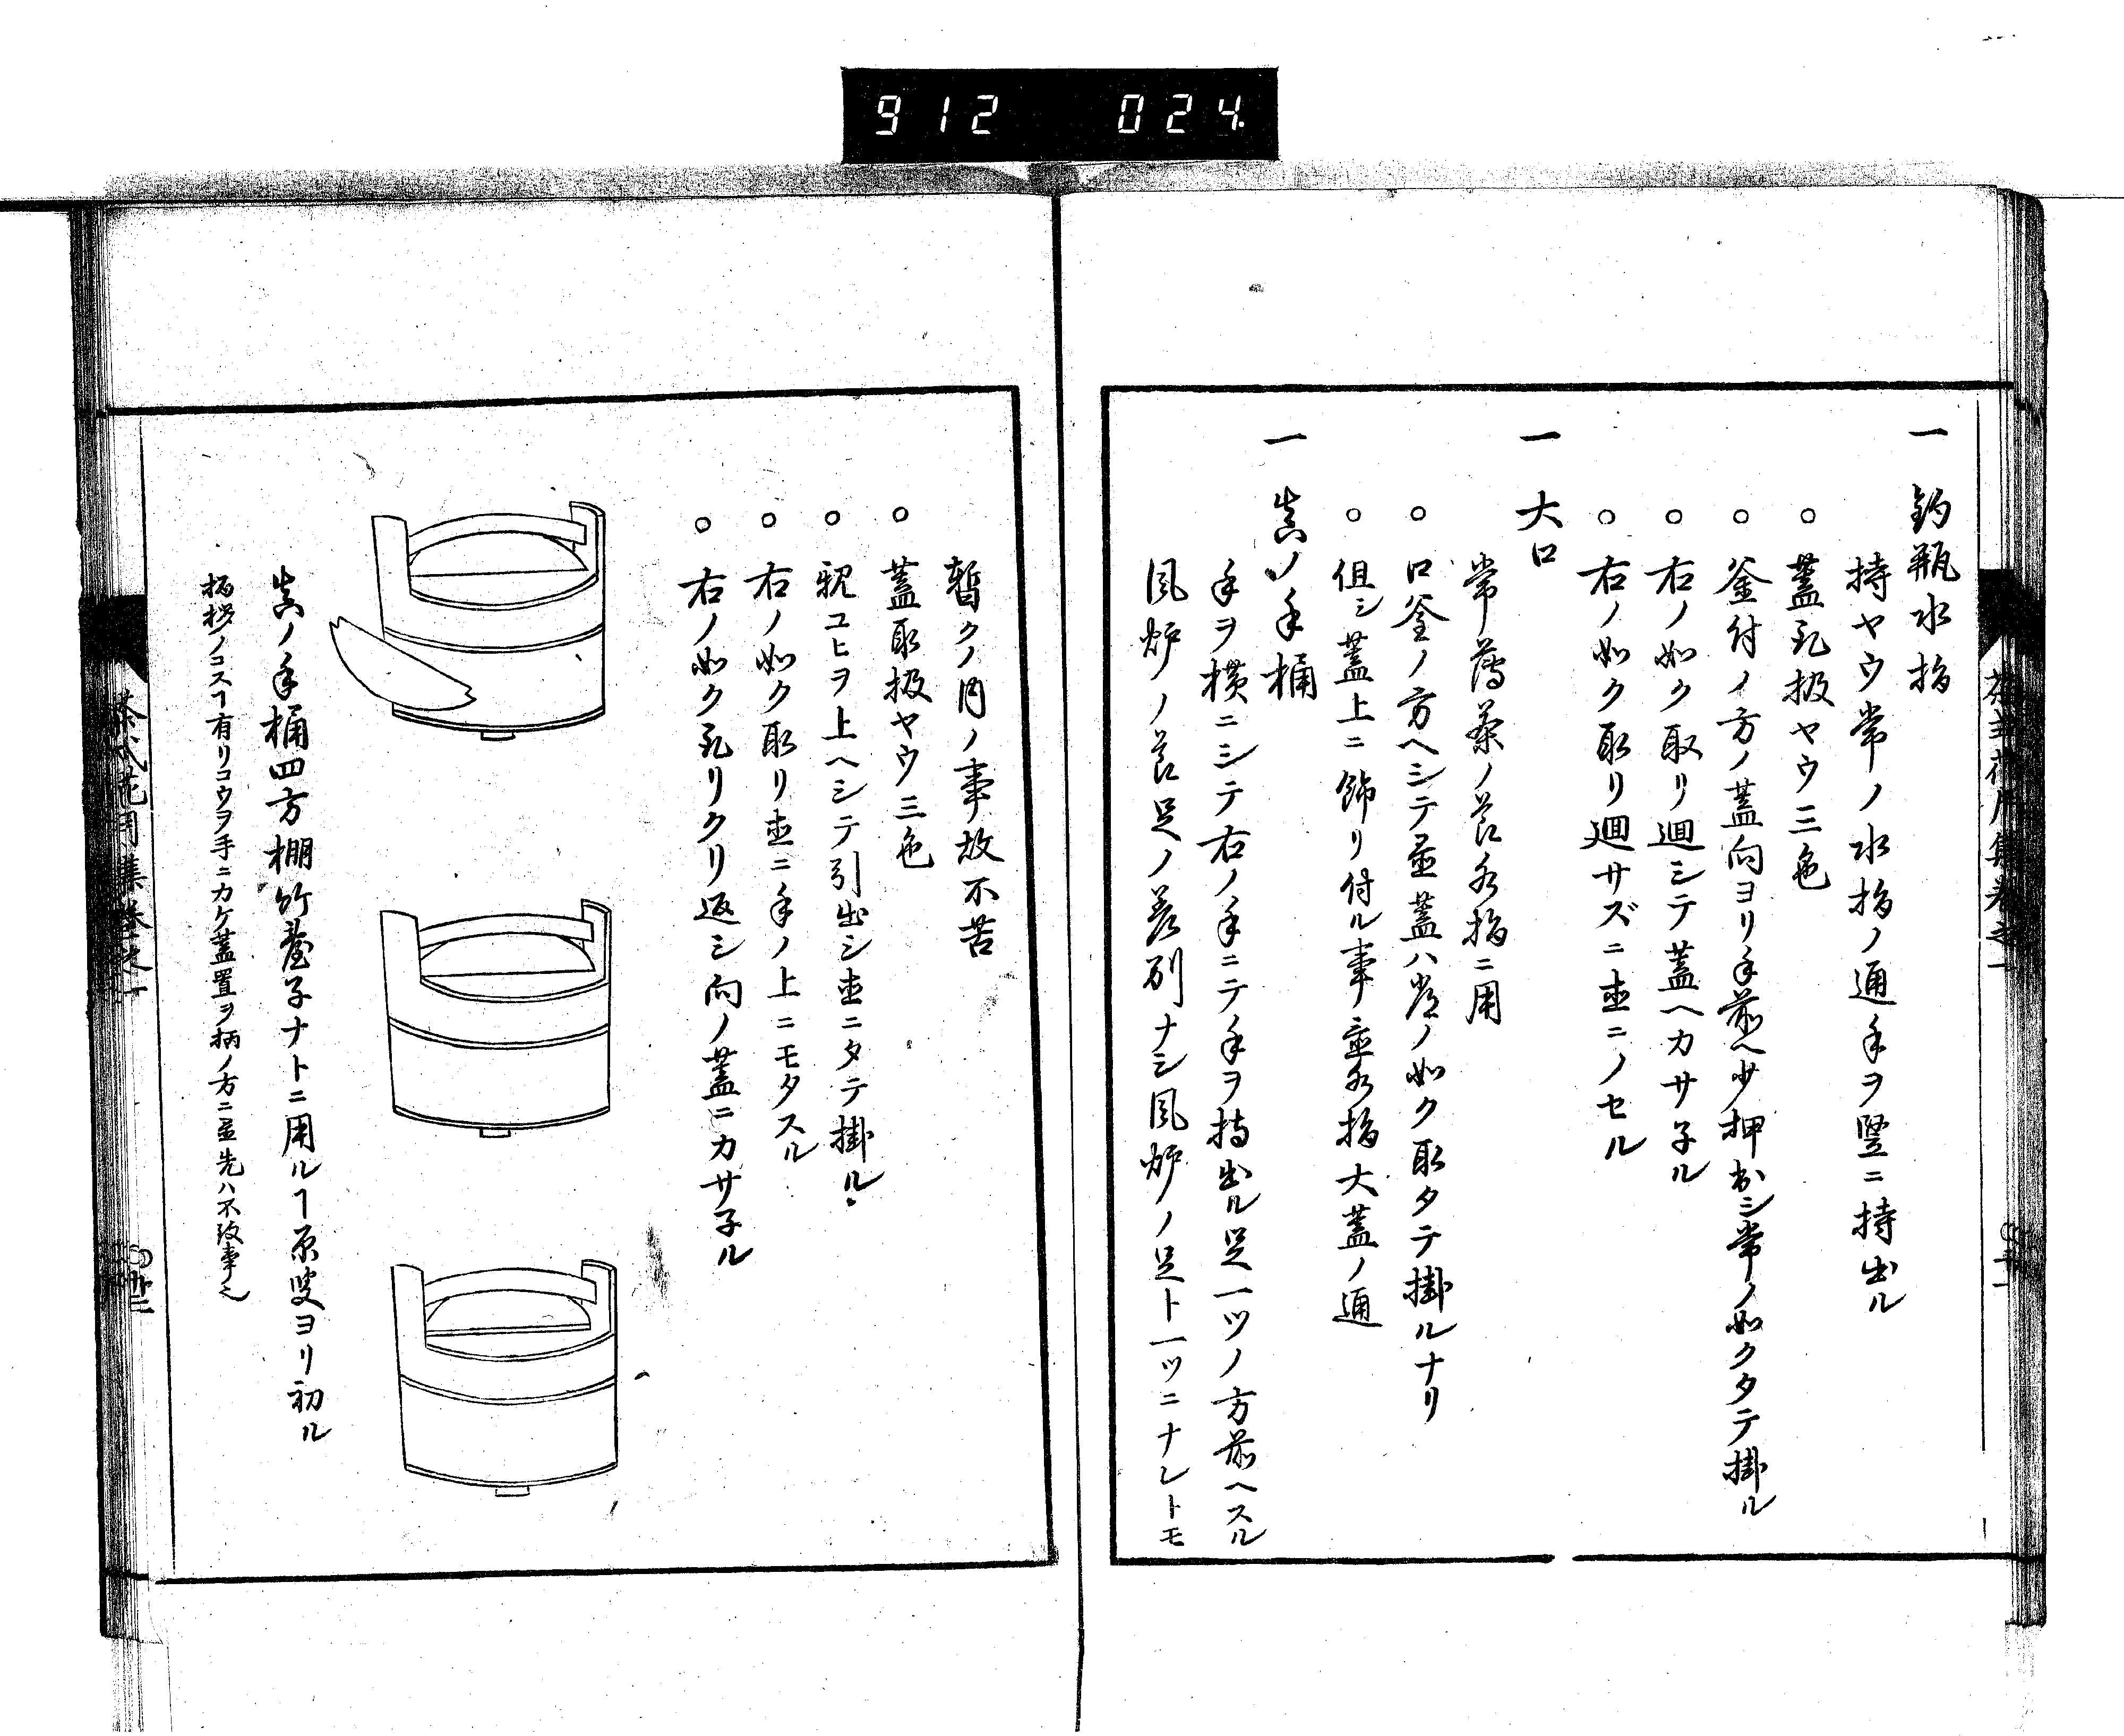 912 024
一 釣瓶水指
持ヤウ常ノ水指ノ通手ヲ竪ニ持出ル
○ 蓋取扱ヤウ三色
○ 釜付ノ方ノ蓋向ヨリ手前ヘ少押出シ常ノ如クタテ掛ル
○ 右ノ如ク取リ廻シテ蓋ヘカサ子ル
○ 右ノ如ク取リ廻サズニ直ニノセル
一 大口
常薄茶ノ節水指ニ用
○ 口釜ノ方ヘシテ置蓋ハ常ノ如ク取タテ掛ルナリ
○ 但シ蓋上ニ飾リ付ル事 水指大蓋ノ通
一 真ノ手桶
手ヲ横ニシテ右ノ手ニテ手ヲ持出ル足一ツノ方前ヘスル
風炉ノ節足ノ差別ナシ風炉ノ足ト一ツニナレトモ
暫クノ内ノ事故不苦
○ 蓋取扱ヤウ三色
○ 親ユヒヲ上ヘシテ引出シ直ニタテ掛ル
○ 右ノ如ク取リ直ニ手ノ上ニモタスル
○ 右ノ如ク取リクリ返シ向ノ蓋ニカサ子ル
真ノ手桶四方棚竹台子ナトニ用ルヿ原叟ヨリ初ル
柄杓ノコスヿ有リコウヲ手ニカケ蓋置ヲ柄ノ方ニ置先ハ不致事也
茶式花月集巻之一